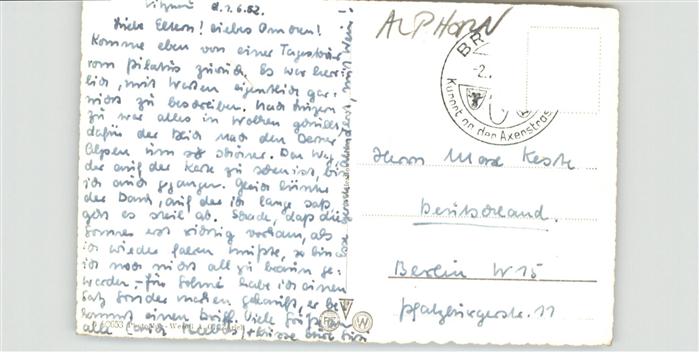 Vitznau d. 1.6.62.
Liebe Eltern! Liebes Omchen!
Komme eben von einer Tagestour
vom Pilatus zurück. Es war herr-
lich, mit Worten eigentlich gar
nicht zu beschreiben. Nach Luzern
zu war alles in Wolken gehüllt,
dafür der Blick nach den Berner
Alpen um so schöner. Den Weg,
der auf der Karte zu sehen ist, bin
ich auch gegangen. Gleich hinter
der Bank, auf der ich lange saß,
geht es steil ab. Schade, daß die
Sonne erst richtig vorkam, als
ich wieder fahren mußte, so bin
ich noch nicht all zu braun ge-
worden. – Für
habe ich einen
Satz Sondermarken gekauft, er be-
kommt einen Brief. Viele Grüße an
alle
ALPHORN
BR
-2.
Kurort an der Axenstrasse
Herrn Max
Deutschland.
Berlin W 15
Pfalzburgerstr. 11